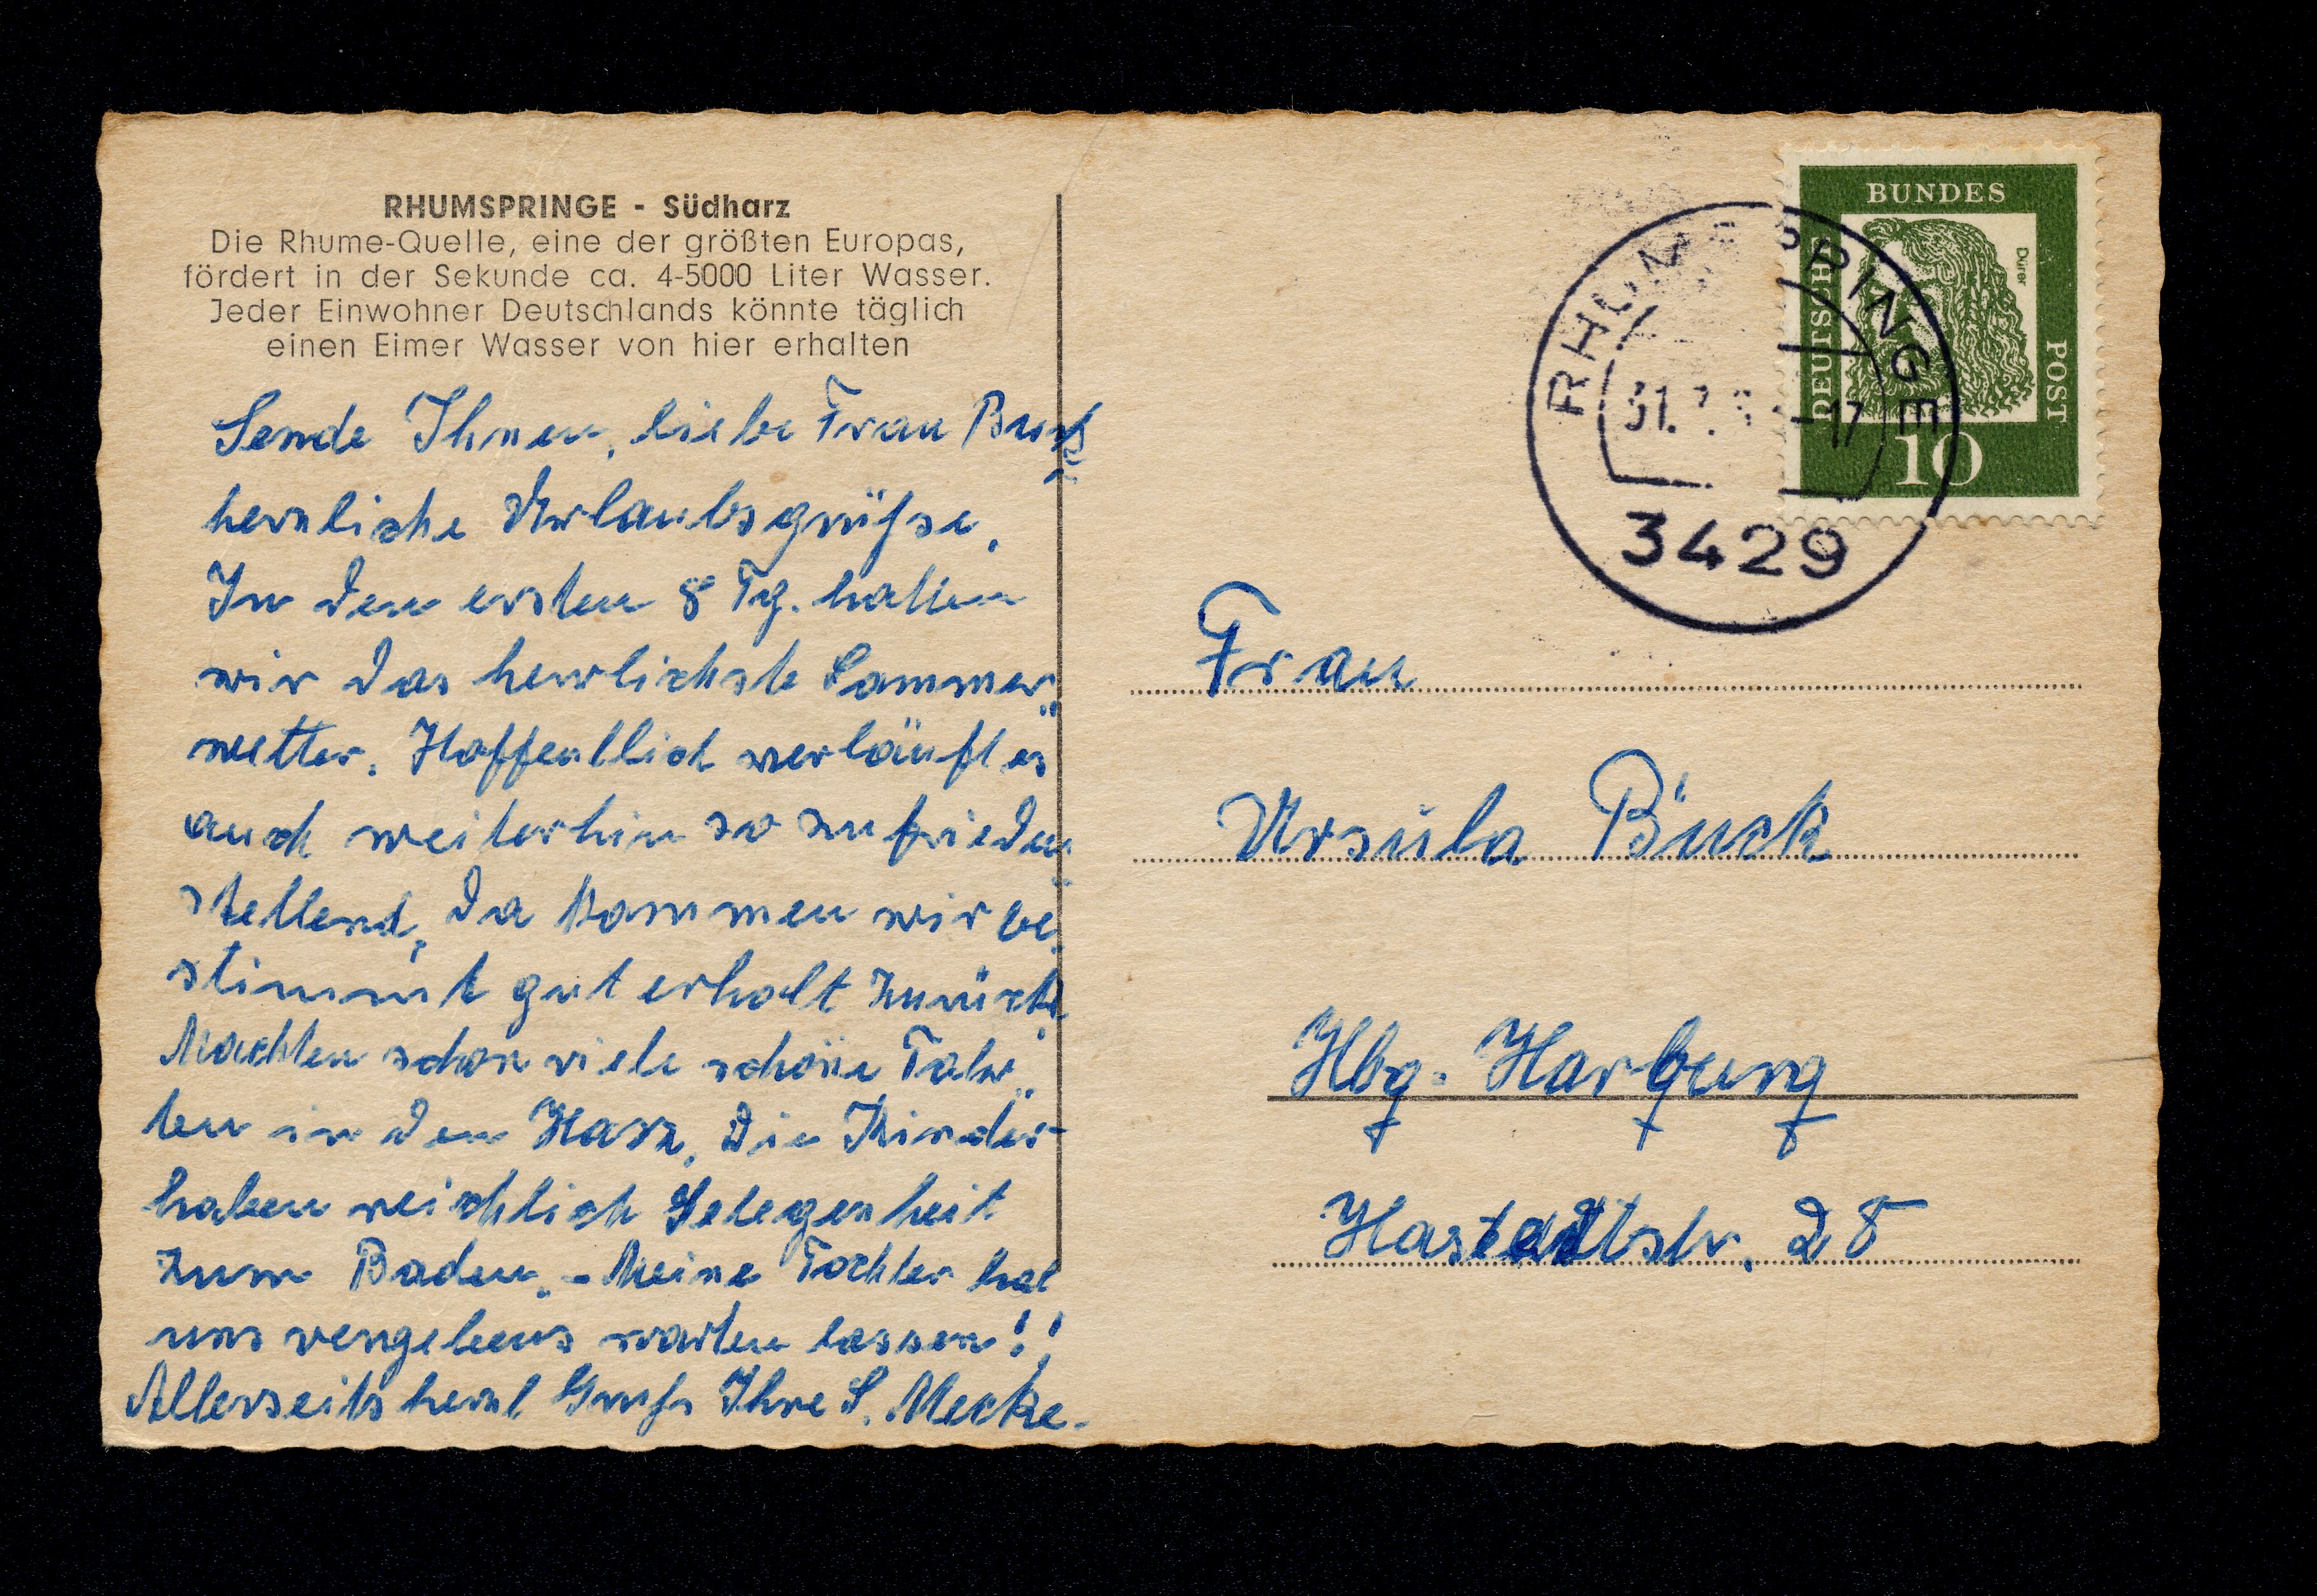 RHUMSPRINGE - Südharz
Die Rhume-Quelle, eine der größten Europas,
fördert in der Sekunde ca. 4-5000 Liter Wasser.
Jeder Einwohner Deutschlands könnte täglich
einen Eimer Wasser von hier erhalten
Sende Ihnen, liebe Frau
herzliche Urlaubsgrüße.
In den ersten 8 Tg. hatten
wir das herrlichste Sommer-
wetter. Hoffentlich verläuft es
auch weiterhin so zufrieden
stellend, da kommen wir be-
stimmt gut erholt zurück.
Machten schon viele schöne Fahr-
ten in den Harz. Die Kinder
haben reichlich Gelegenheit
zum Baden. - Meine Tochter hat
uns vergebens warten lassen!!
Allerseits herzl Gruß Ihre S. Mecke.
BUNDES
DEUTSCHE
POST
Dürer
10
RHUMSPRINGE
-17
3429
Frau
Ursula Buck
Hbg. Harburg
Hastedtstr. 28